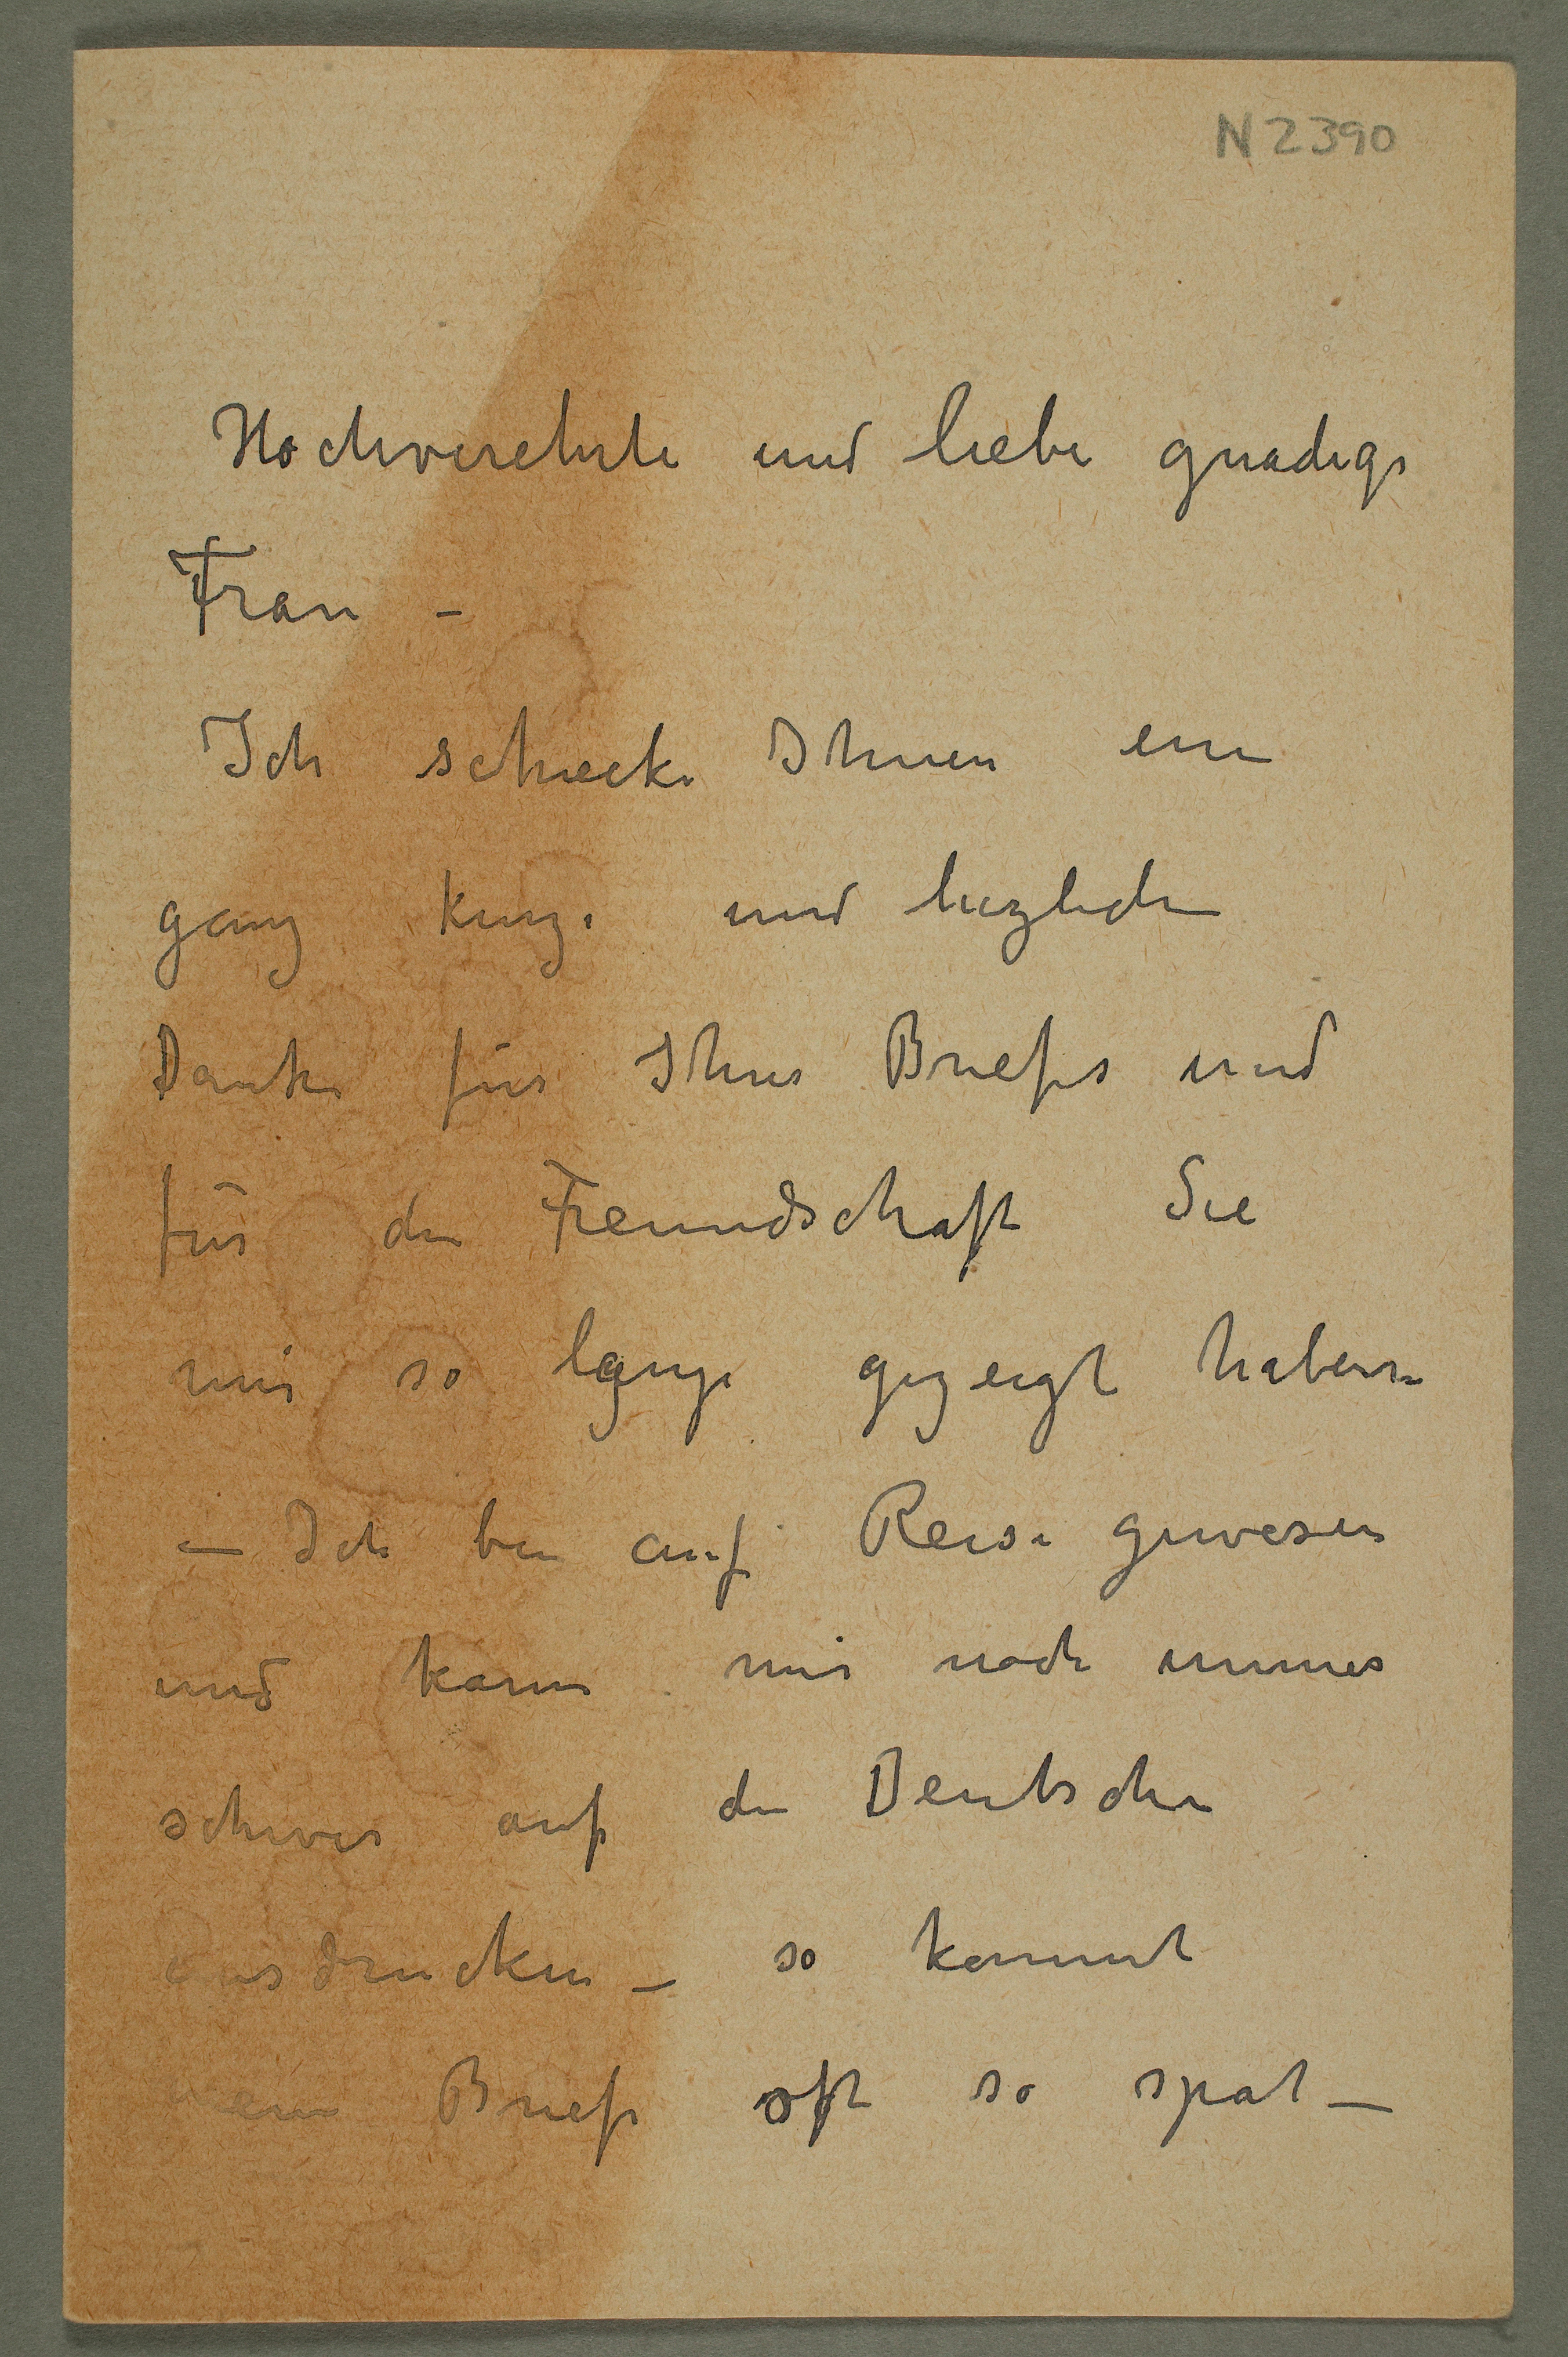 N 2390
Hochverehrte und liebe gnadige
Frau –
Ich schicke Ihnen ein
ganz kurze und herzliche
Danke für Ihre Briefes und
für die Freundschaft Sie
mir so lange gezeigt haben
– Ich bin auf Reise gewesen
und kann mir noch immer
schwer auf die Deutsche
ausdrucken – so kommt
mein Briefe oft so spat –